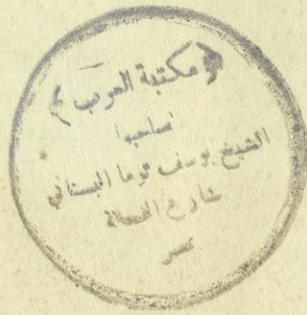 ﴿مكتبة العرب﴾
لصاحبها
الشيخ يوسف توما البستاني
شارع الفجالة
مصر